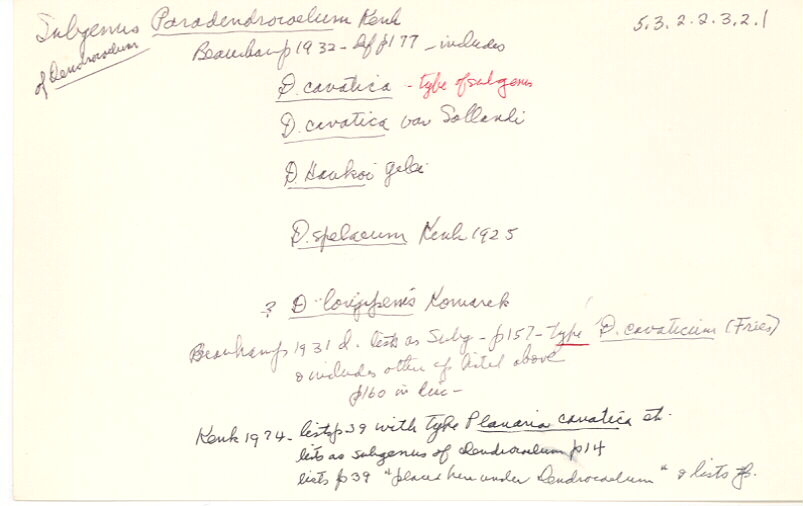 Subgenus Paradendrocoelum Kenk 5.3.2.2.3.2.1
of Dendrocoelum
Beauchamp 1932 - p177 - includes
D. cavatica - type of subgenus
D. cavatica var Sollaudi
D. Hankoi
D. spelaeum Kenk 1925
? D. Komarek
Beauchamp 1931 d. lists as Subg - p157 - type D. cavaticum (Fries)
& includes other sp listed above
p160 in
Kenk 1974 - lists p39 with type Planaria cavatica
lists as subgenus of Dendrocoelum p14
lists p39 "placed here under Dendrocoelum" & lists sp.